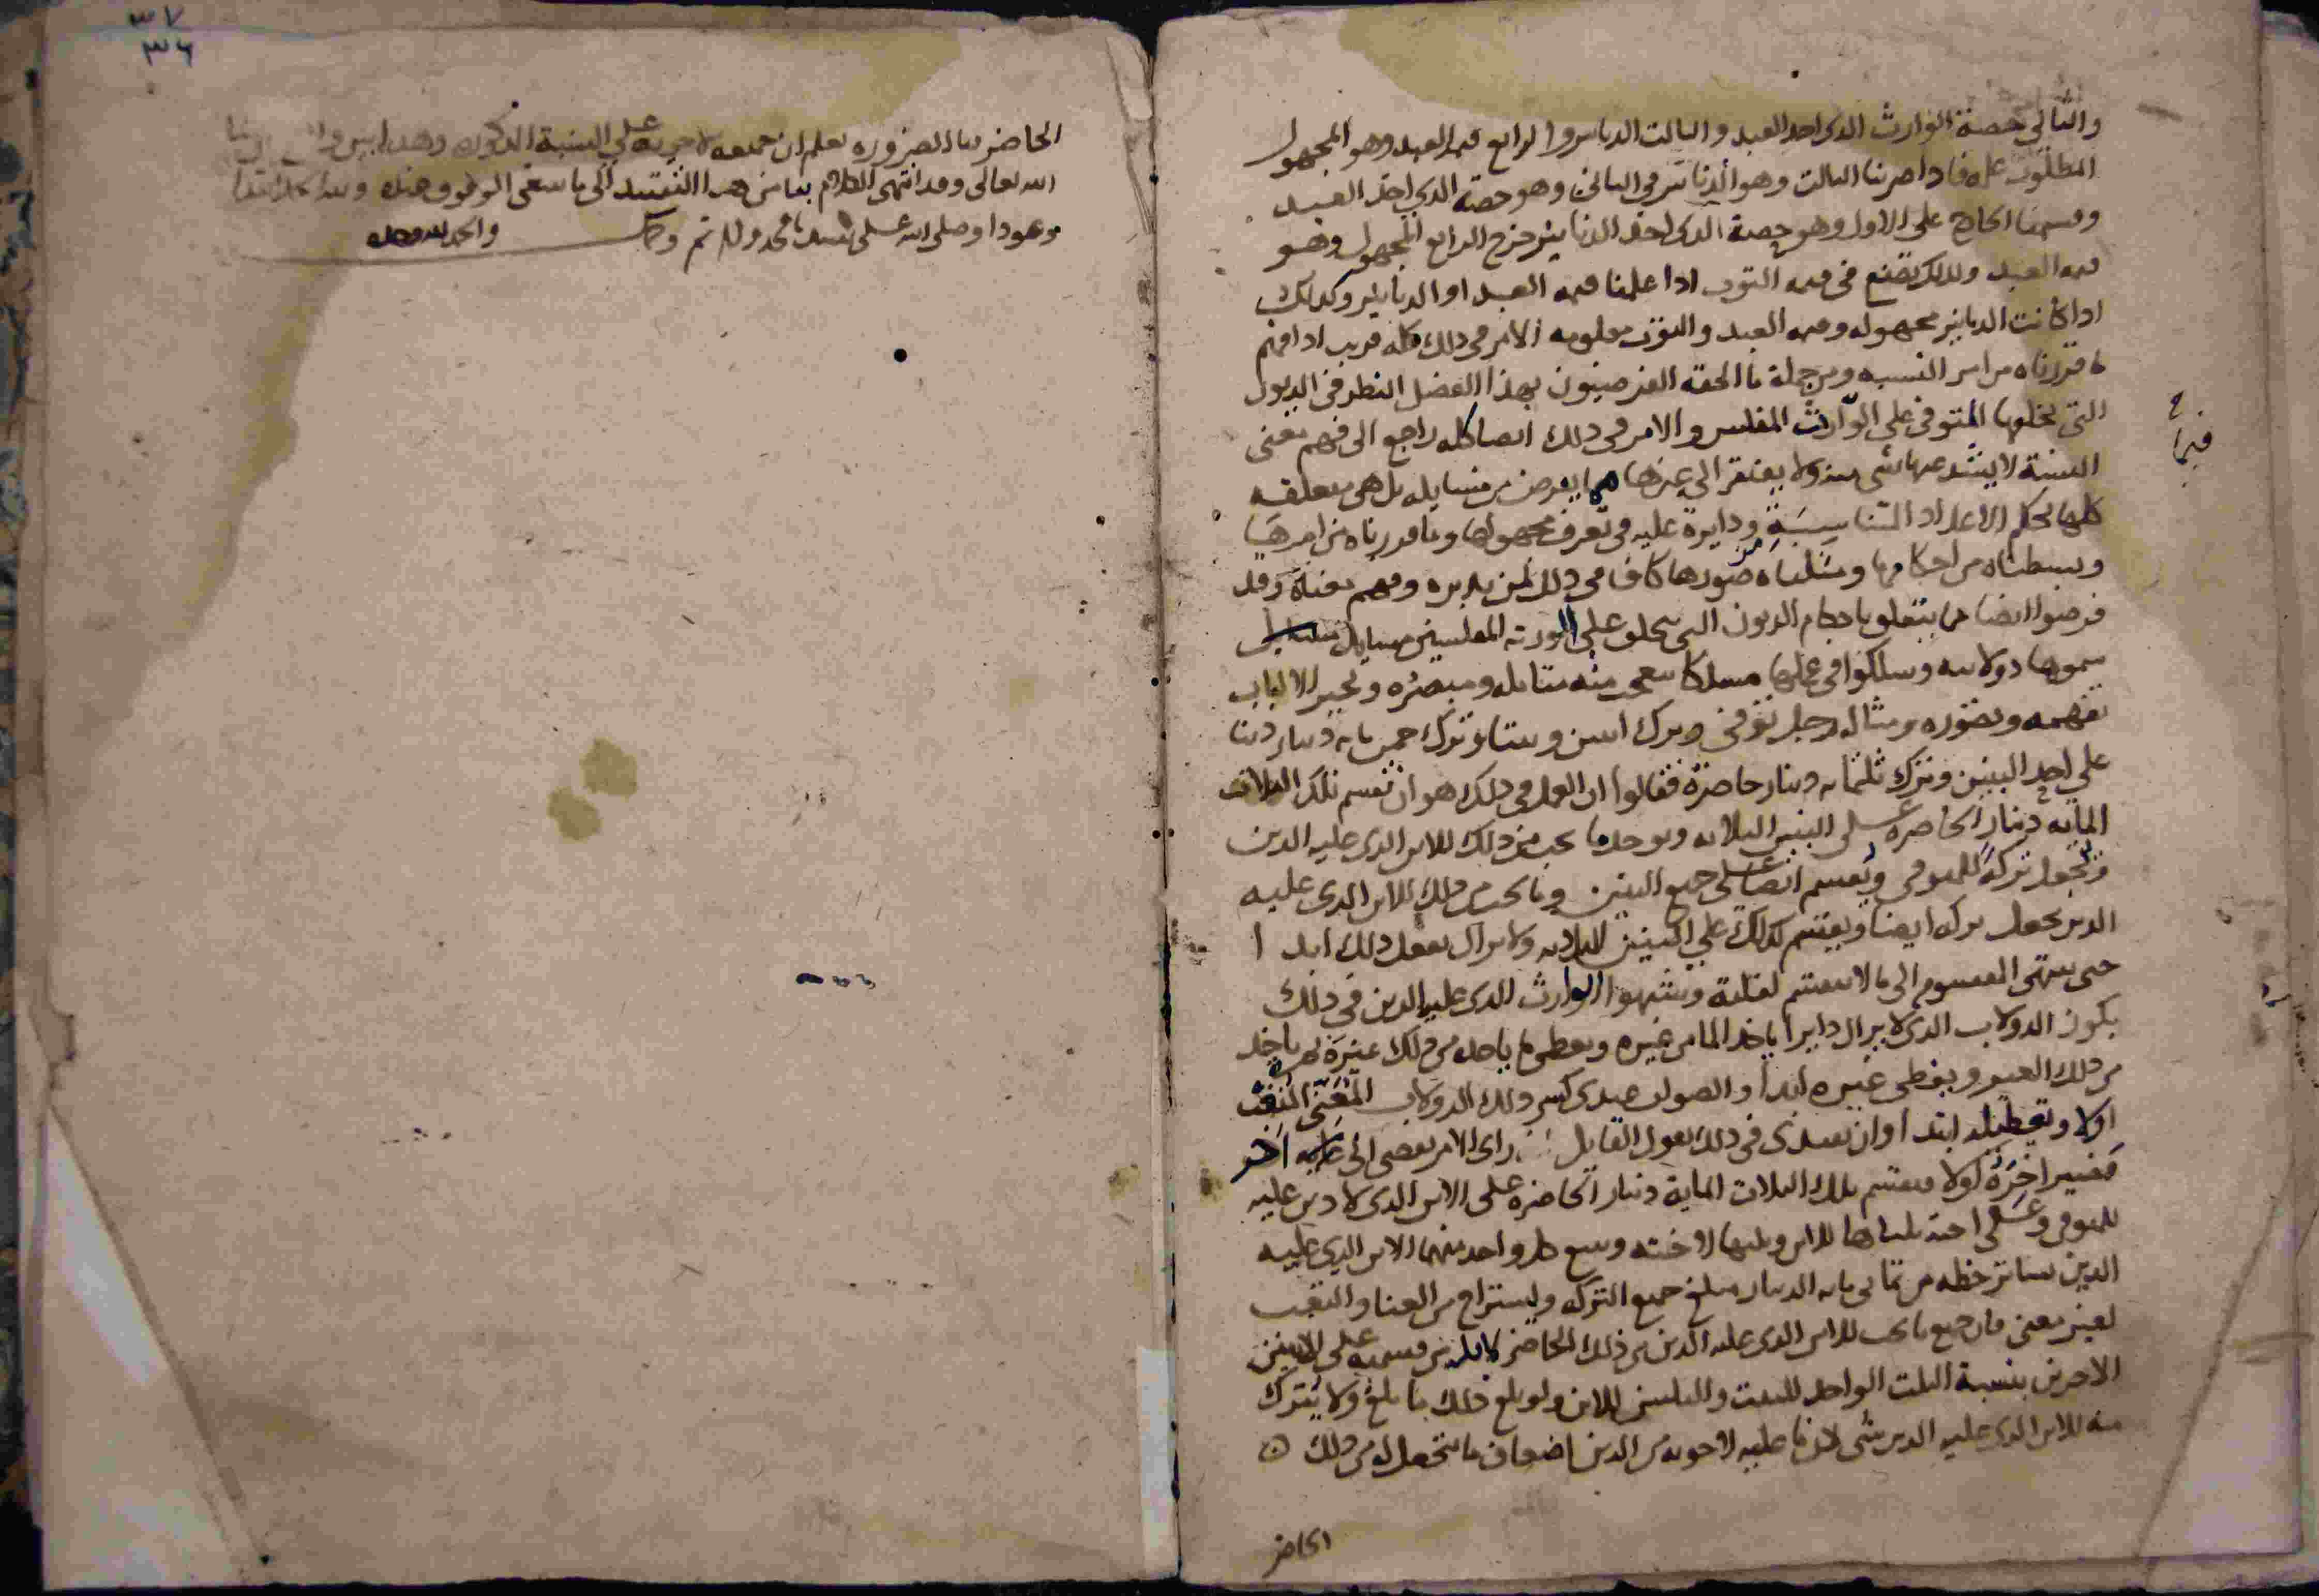 والثاني حصة الوارث الذي اخد العبد والثالث الدنانير والرابع قيمة العبد وهو المجهول
المطلوب علمه فاذا ضربنا الثالث وهو الدنانير في الثاني وهو حصة الذي اخد العبد
وقسمنا الخارج على الاول وهو حصة الذي اخد الدنانير خرج الرابع المجهول وهو
قيمة العبد وكذلك نصنع في قيمة الثوب اذا علمنا قيمة العبد او الدنانير وكذلك
اذا كانت الدنانير مجهوله وقيمة العبد والثوب معلومه الامر في ذلك كله قريب اذا فهم
ما قررناه من امر النسبه ومن جملة ما الحقه الفرضيون بهذا الفصل النظر في الديون
التي يخلفها المتوفى على الوارث المفلس والامر في ذلك ايضا كله راجع الى فهم معنى
النسبة لا يشذ عنها شي منه ولا يفتقر الى غيرها فيما يعرض من مسايله بل هي متعلقه
كلها بحكم الاعداد المتناسبة ودايرة عليه في تعرف مجهولها وما قررناه من امرها
وبسطناه من احكامها ومثلناه من صورها كاف في ذلك لمن تدبره وفهم معناه وقد
فرضوا ايضا مما يتعلق باحكام الديون التي تخلف على الورثه المفلسين مسايل
سموها دولابيه وسلكوا في عملها مسلكا يتعجب منه متامله ومبصره ويحير الالباب
تفهمه وتصوره ومثاله رجل توفي وترك ابنين وبنتا وترك خمس مايه دينار دينا
على احد البنين وترك ثلثمايه دينار حاضرة فقالوا ان العمل في ذلك هو ان تقسم تلك الثلاث
المايه دينار الحاضرة على البنين الثلاثه ويوخد ما يجب من ذلك للابن الذي عليه الدين
وتجعل تركة للمتوفى ويقسم ايضا على جميع البنين وما يجب من ذلك للابن الذي عليه
الدين يجعل تركه ايضا ويقتسم كذلك على البنين الثلاثه ولا يزال يفعل ذلك ابدا
حتى ينتهي المقسوم الى ما لا ينقسم لقلته وشبهوا الوارث الذي عليه الدين في ذلك
بكون الدولاب الذي لا يزال دايرا ياخد الما من غيره ويعطي ما ياخده من ذلك غيره ثم ياخد
من ذلك الغير ويعطي غيره ابدا والصواب عندي كسر ذلك الدولاب المعنى المتعب
اولا وتعطيله ابتدا وان نعتدى في ذلك بقول القايل راى الامر يفضي الى اخر
فصير اخره اولا فيقسم تلك الثلاث الماية دينار الحاضرة على الابن الذي لا دين عليه
للمتوفى وعلى اخته ثلثاها للابن وثلثها لاخته ويتبع كل واحد منهما الابن الذي عليه
الدين بساير حظه من ثماني مايه الدينار مبلغ جميع التركه ويستراح من العنا والتعب
لغير معنى فان جميع ما يجب للابن الذي عليه الدين من ذلك الحاضر لا بد من قسمته على الابنين
الاخرين بنسبة الثلث الواحد للبنت والثلثين للابن ولو بلغ ذلك ما بلغ ولا يترك
منه للابن الذي عليه الدين شي لان ما عليه لاخوته من الدين اضعاف ما يتحصل له من ذلك
الحاضر
فيما
الحاضر بالضروره يعلم ان جميعه لاخوته على النسبة المذكوره وهذا بين
الله تعالى وقد انتهى الكلام بنا من هذا التقييد الى ما ينبغي الوقوف عنده ولله الحمد ابتدا
وعودا وصلى الله على سيدنا محمد واله تم وكمل والحمد لله وحده
٣٧
٣٦